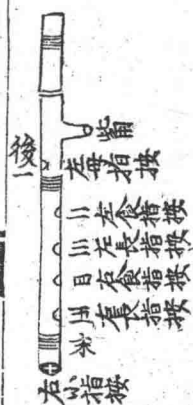 觜
後一
左母指按
二左食指按
三左長指按
四右食指按
五右長指按
末
右小指按